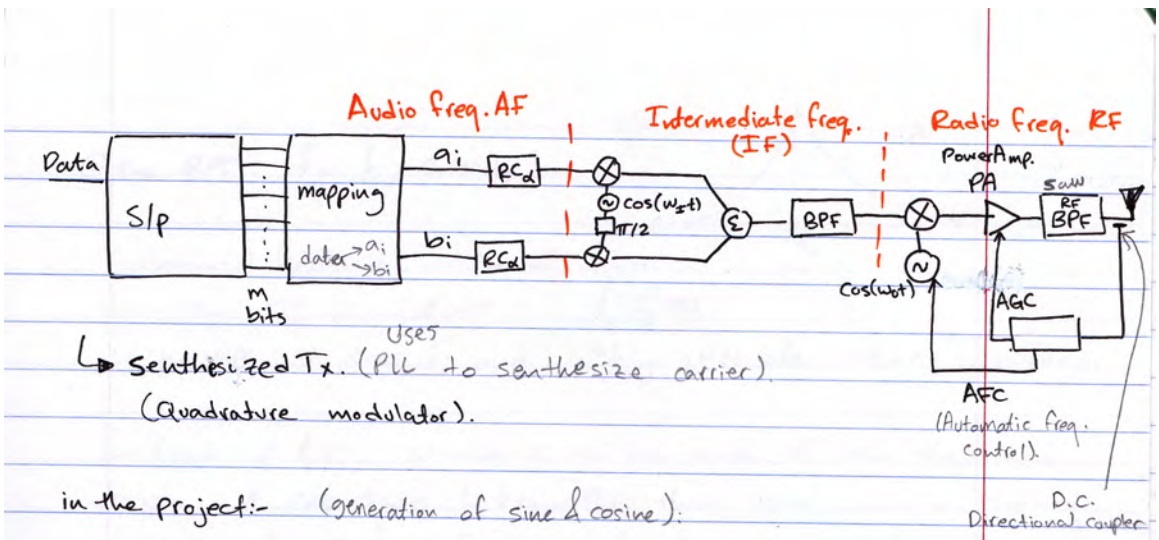 Audio freq. AF
Intermediate freq.
(IF)
Radio freq. RF
PowerAmp.
PA
Data
S/p
m
bits
mapping
data → ai
→ bi
ai
bi
RCα
RCα
cos(ωIt)
π/2
Σ
BPF
cos(ωot)
saw
RF
BPF
AGC
AFC
(Automatic freq.
control).
D.C.
Directional coupler
↳ Senthesized Tx. (uses PLL to senthesize carrier).
(Quadrature modulator).
in the project:- (generation of sine & cosine):